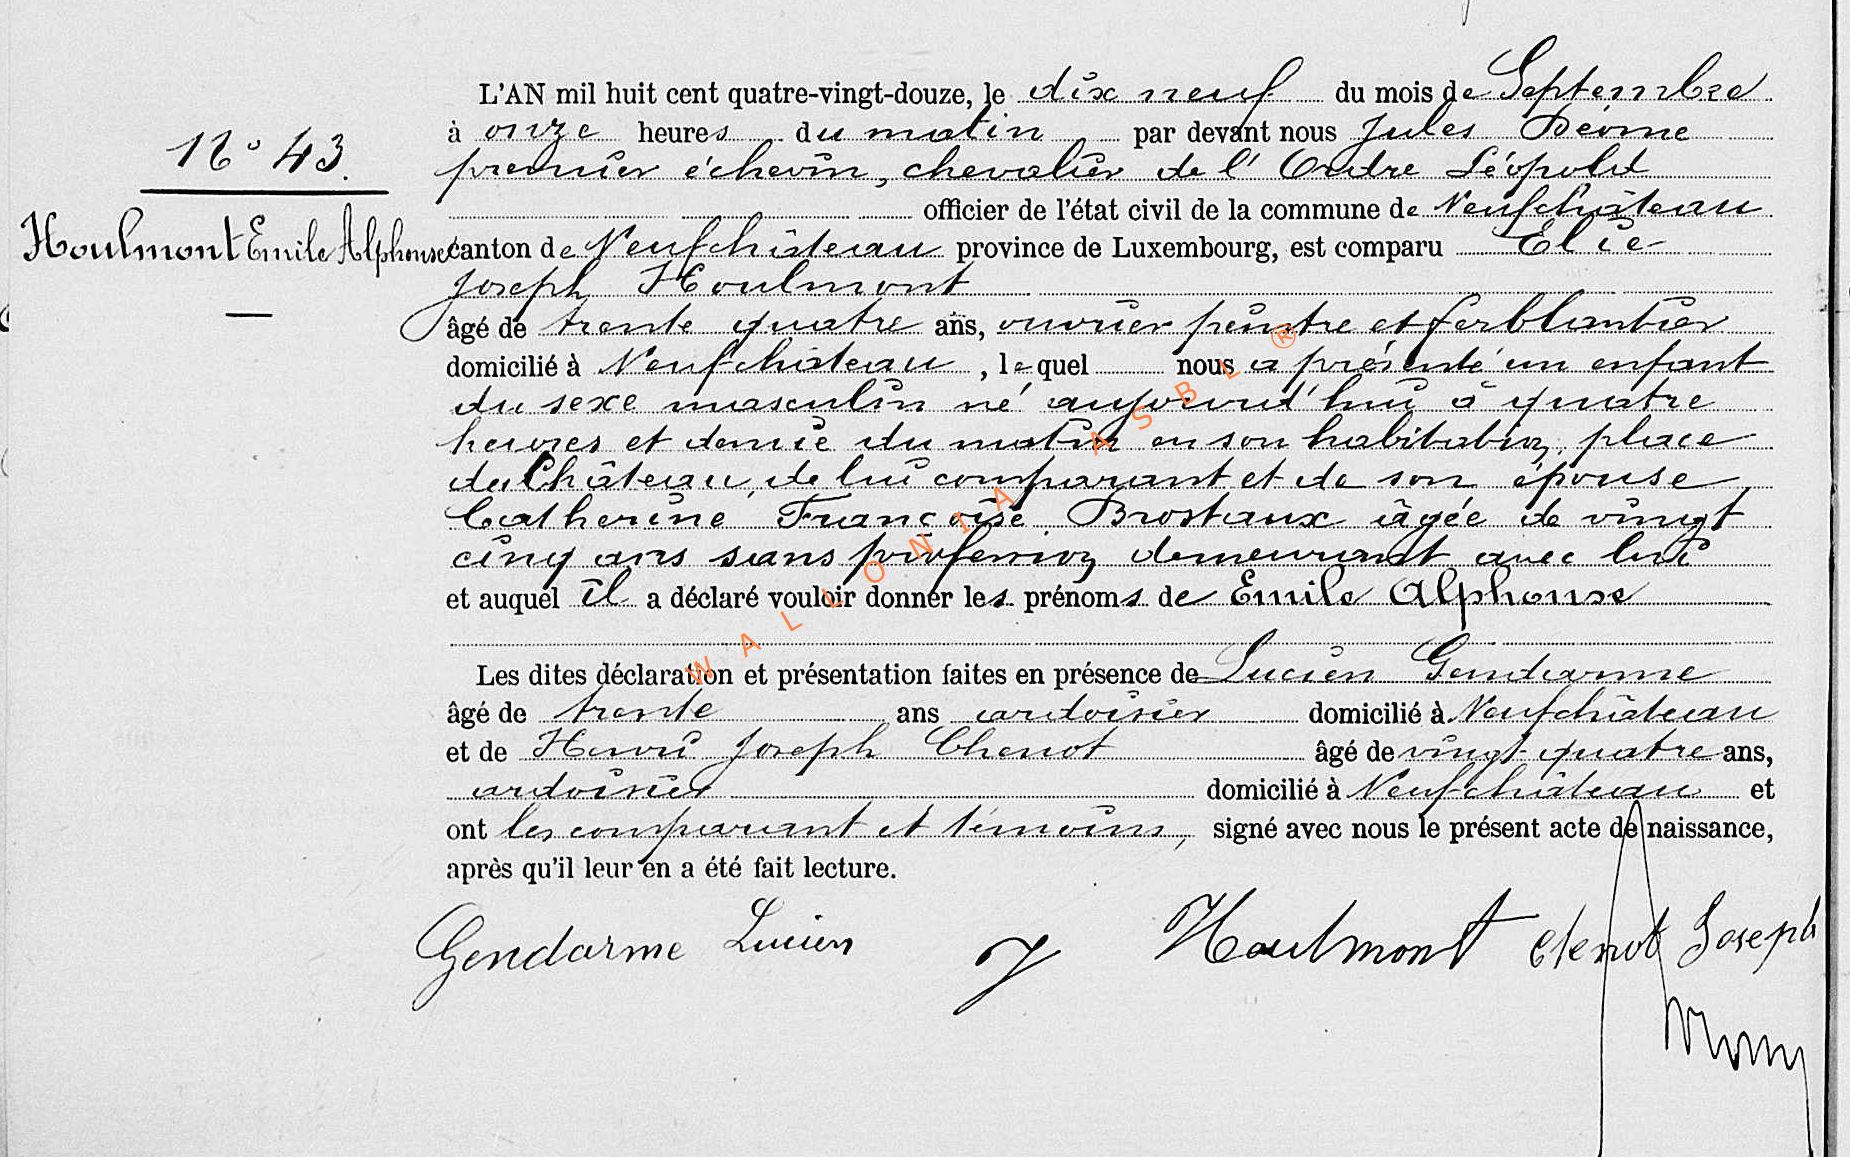 L'AN mil huit cent quatre-vingt-douze, le dix neuf du mois de Septembre
N° 43.
à onze heures du matin par devant nous Jules
premier échevin, chevalier de l'Ordre Léopold
officier de l'état civil de la commune de Neufchâteau
Houlmont Emile Alphonse
canton de Neufchâteau province de Luxembourg, est comparu Elie
Joseph Houlmont
âgé de trente quatre ans, ouvrier peintre et ferblantier
domicilié à Neufchâteau, lequel nous a présenté un enfant
du sexe masculin né aujourd'hui à quatre
heures et demie du matin en son habitation, place
du Château, de lui comparant et de son épouse,
Catherine Françoise Brostaux âgée de vingt
cinq ans sans profession demeurant avec lui
et auquel il a déclaré vouloir donner les prénoms de Emile Alphonse
Les dites déclaration et présentation faites en présence de Lucien Gendarme
âgé de trente ans ardoisier domicilié à Neufchâteau
et de Henri Joseph Chenot âgé de vingt-quatre ans,
ardoisier domicilié à Neufchâteau et
ont les comparant et témoins, signé avec nous le présent acte de naissance,
après qu'il leur en a été fait lecture.
Gendarme Lucien J Houlmont Chenot Joseph
WALLONIA ASBL ®